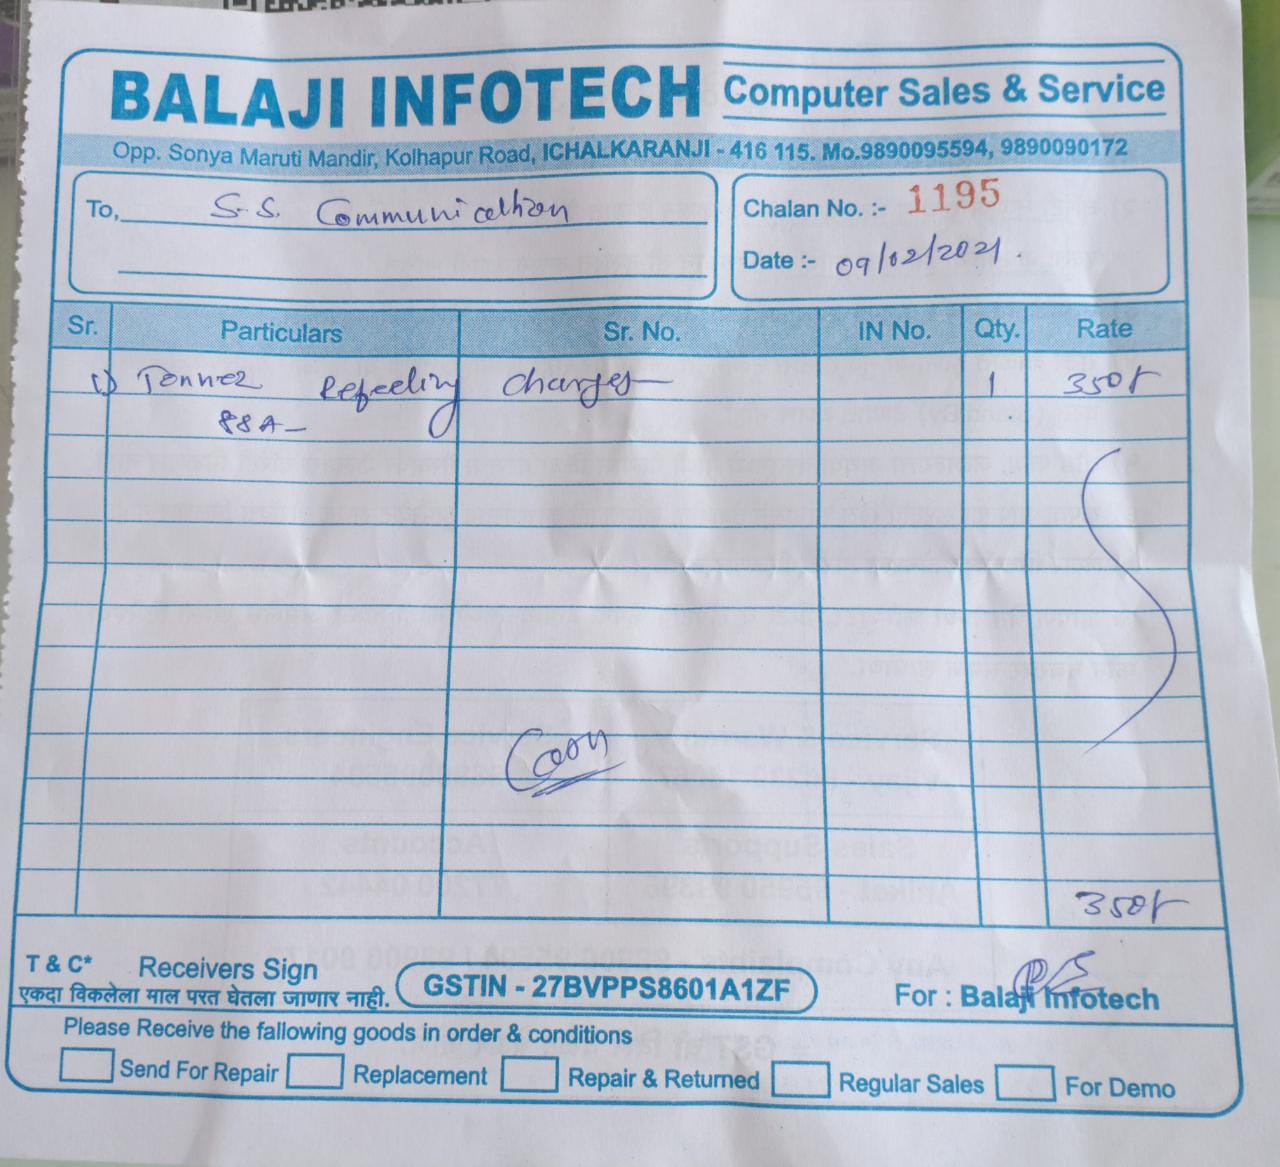 BALAJI INFOTECH Computer Sales & Service
Opp. Sonya Maruti Mandir, Kolhapur Road, ICHALKARANJI - 416 115. Mo.9890095594, 9890090172
To, S.S. Communication
Chalan No. :- 1195
Date :- 09/02/2021.
Sr. Particulars Sr. No. IN No. Qty. Rate
1) Tonner Refeeling Charges 1 350/-
88A
Cash
350/-
T & C* Receivers Sign
एकदा विकलेला माल परत घेतला जाणार नाही.
GSTIN - 27BVPPS8601A1ZF
For : Balaji Infotech
Please Receive the fallowing goods in order & conditions
Send For Repair Replacement Repair & Returned Regular Sales For Demo